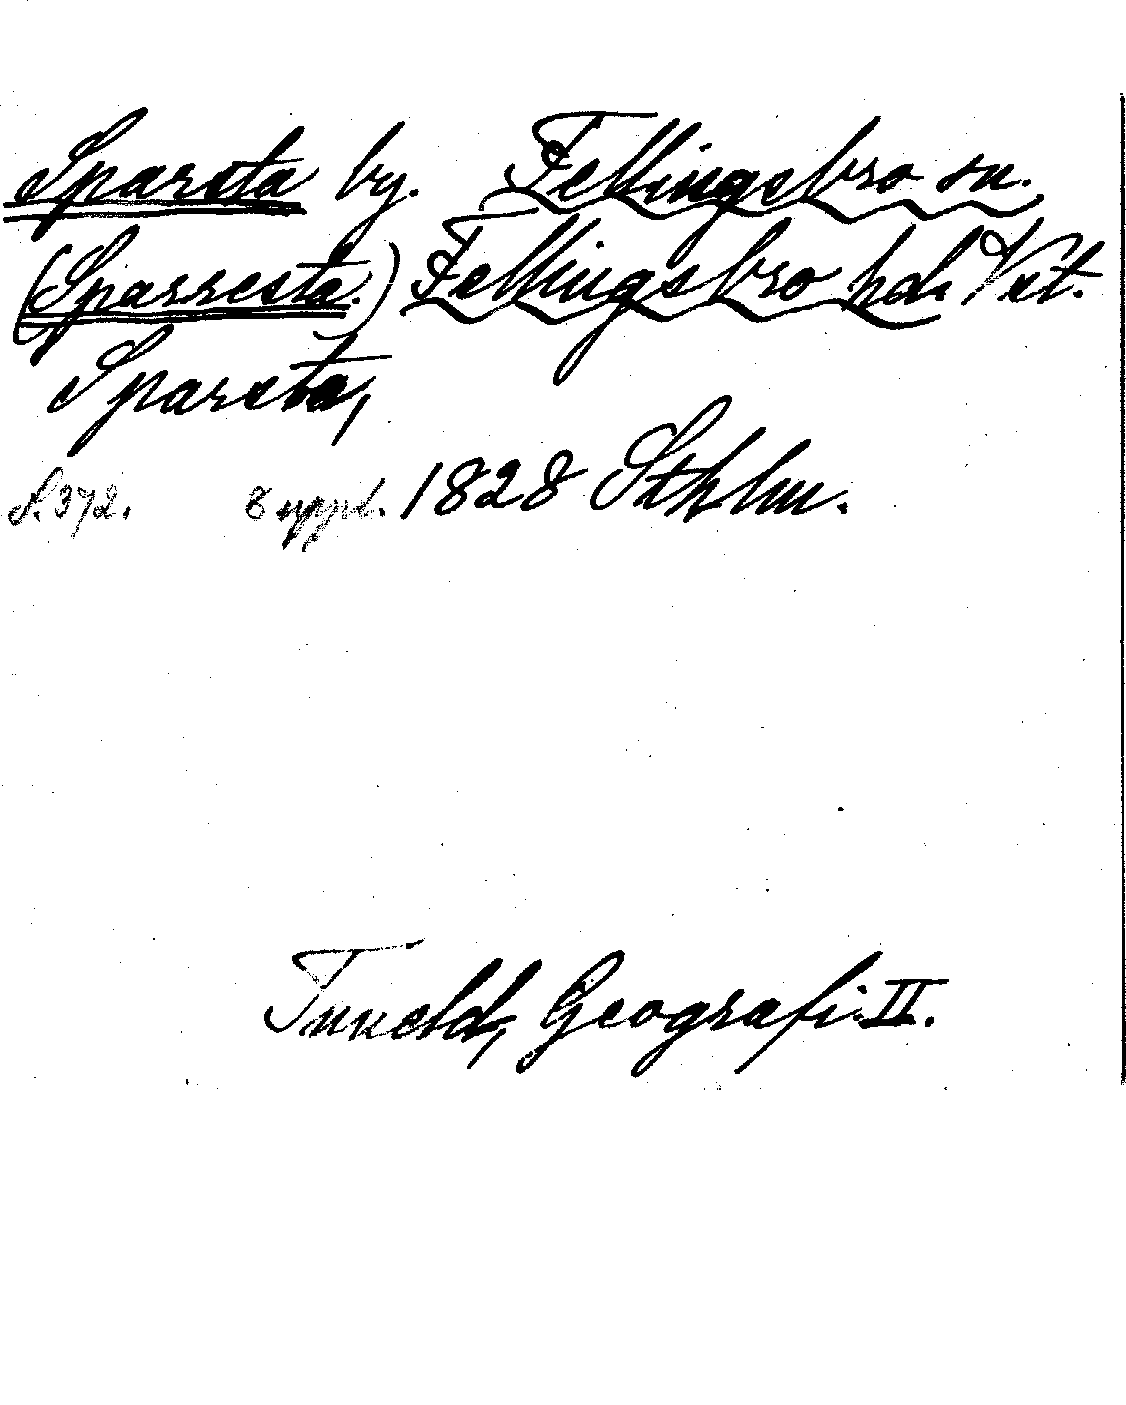 Sparsta by. Fellingsbro sn.
(Sparresta.) Fellingsbro hd. Vstl.
Sparsta,
S. 372. 8 uppl. 1828 Sthlm.
Tuneld, Geografi II.